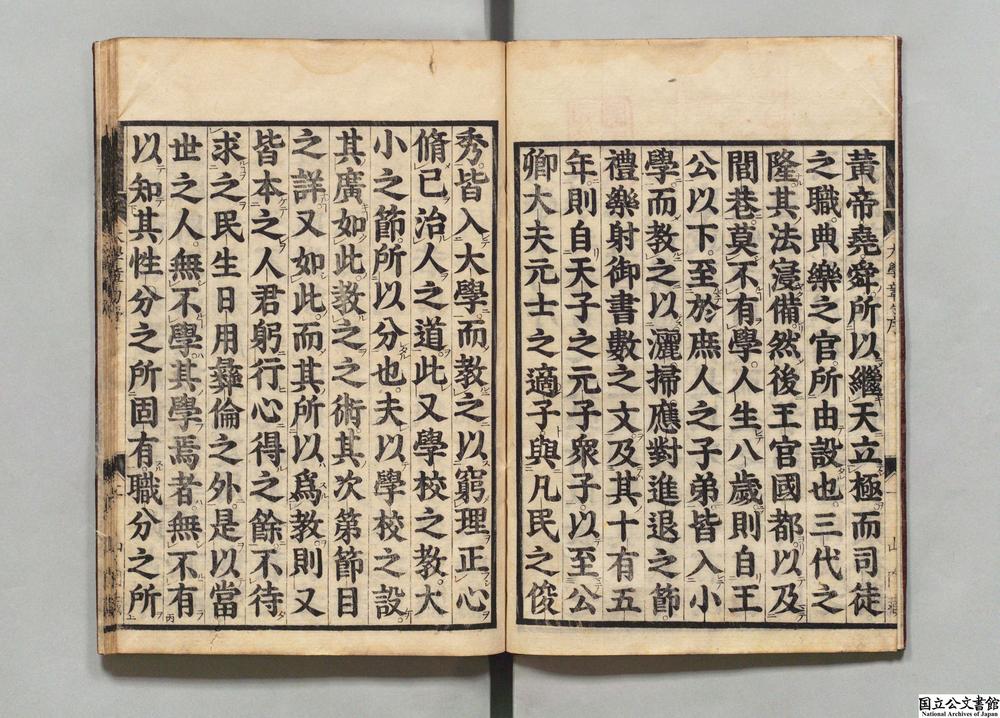 黃帝堯舜所以繼天立極而司徒
之職典樂之官所由設也三代之
隆其法寖備然後王宮國都以及
閭巷莫不有學人生八歲則自王
公以下至於庶人之子弟皆入小
學而教之以灑掃應對進退之節
禮樂射御書數之文及其十有五
年則自天子之元子衆子以至公
卿大夫元士之適子與凡民之俊
秀皆入大學而教之以窮理正心
脩己治人之道此又學校之教大
小之節所以分也夫以學校之設
其廣如此教之之術其次第節目
之詳又如此而其所以爲教則又
皆本之人君躬行心得之餘不待
求之民生日用彝倫之外是以當
世之人無不學其學焉者無不有
以知其性分之所固有職分之所
国立公文書館
National Archives of Japan